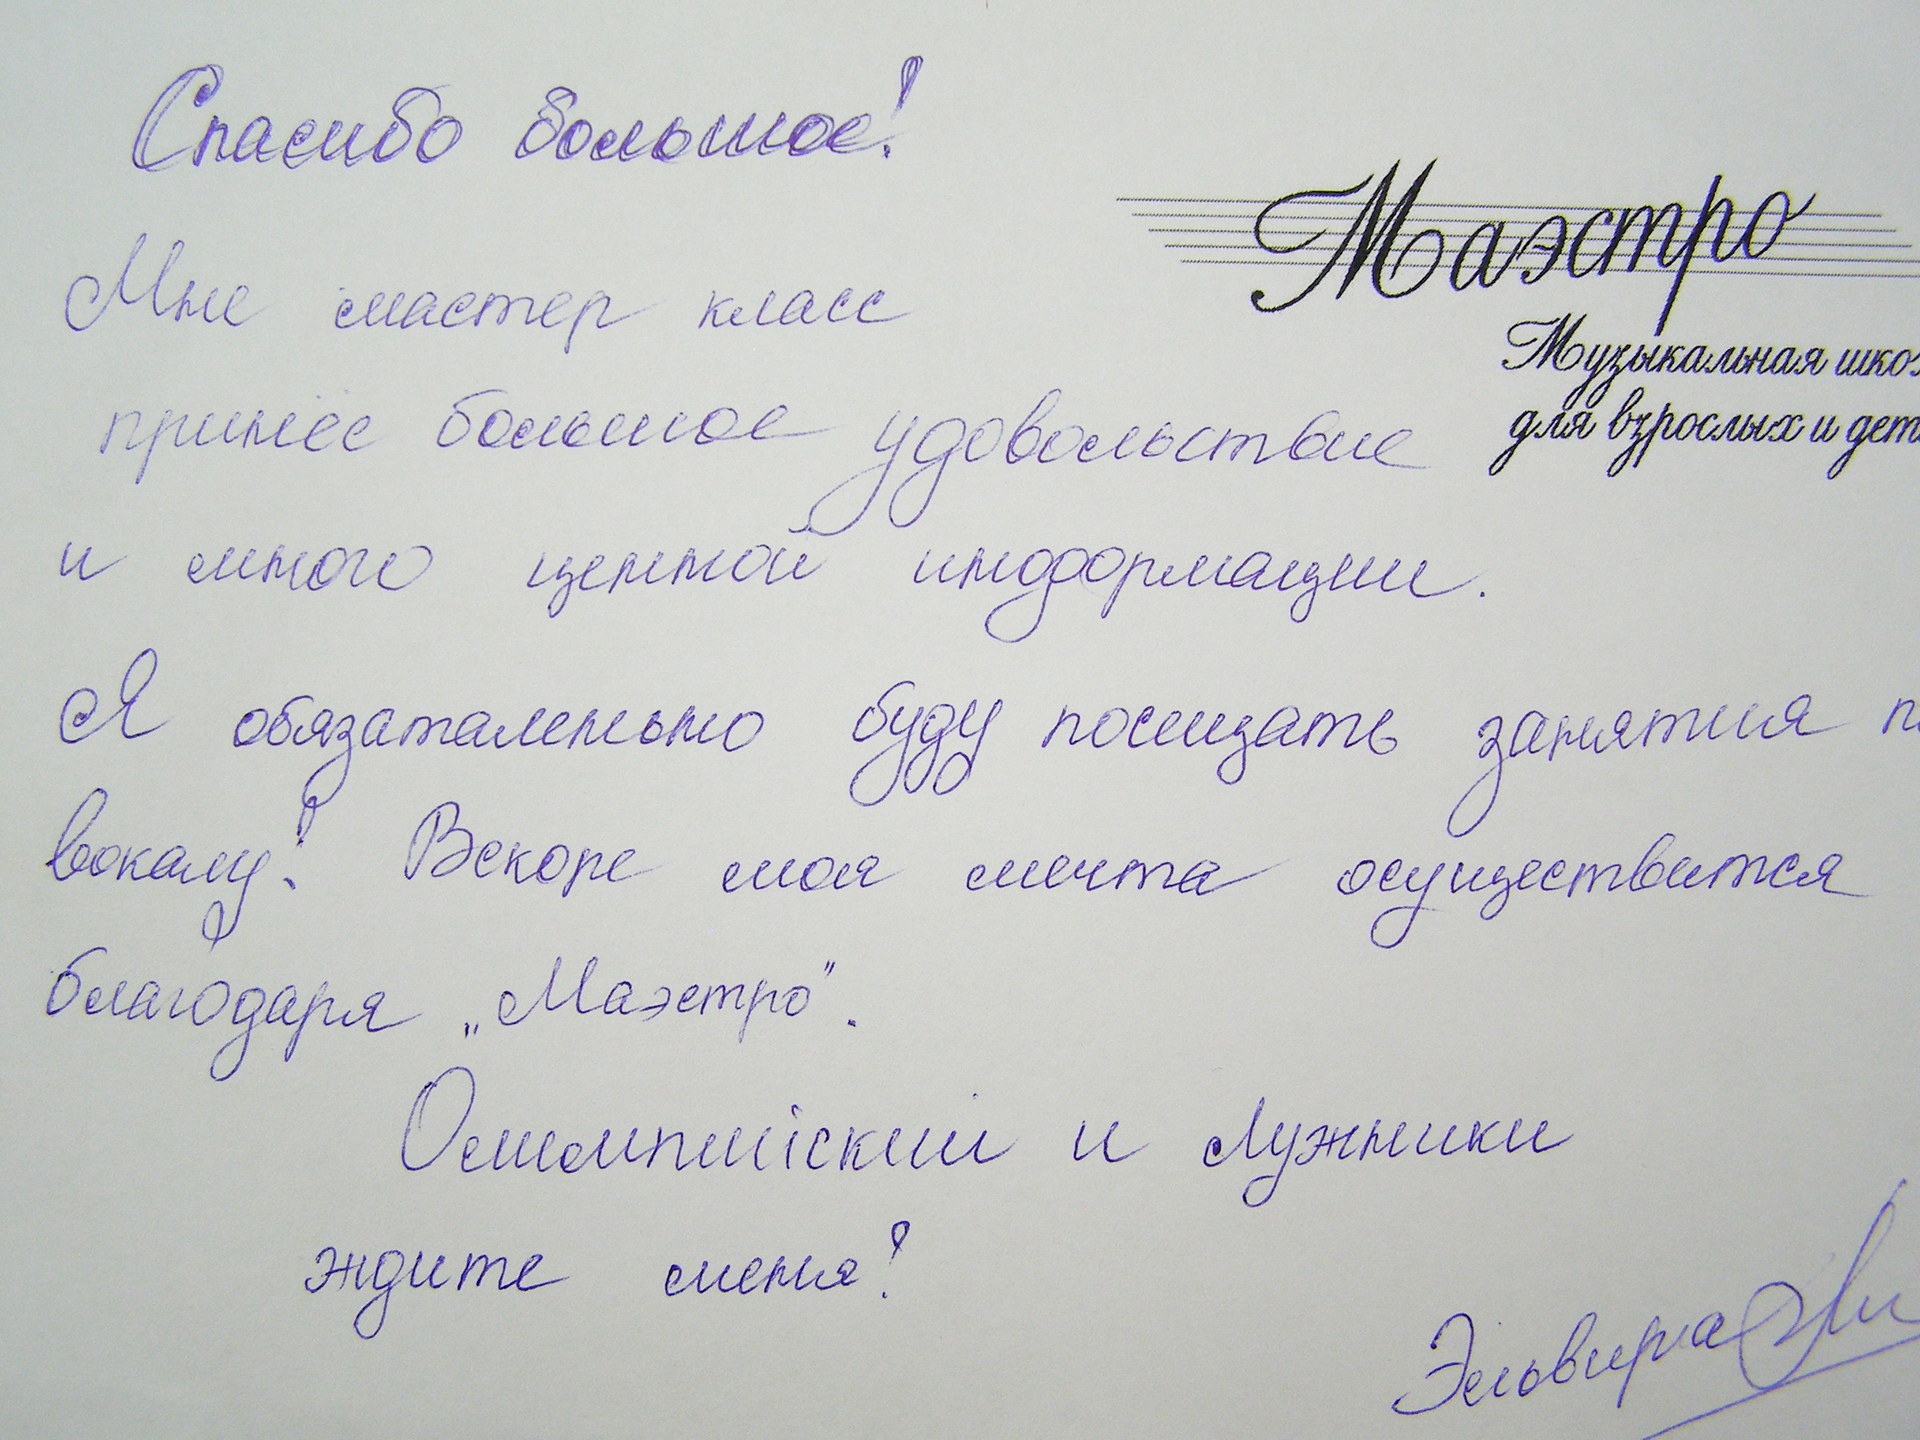 Спасибо большое!
Маэстро
Музыкальная шко
для взрослых и дет
Мне мастер класс
принёс большое удовольствие
и много ценной информации.
Я обязаталеньно буду посещать занятия п
вокалу! Вскоре моя мечта осуществится
благодаря „Маэстро".
Олимпийский и Лужники
ждите меня!
Эльвира